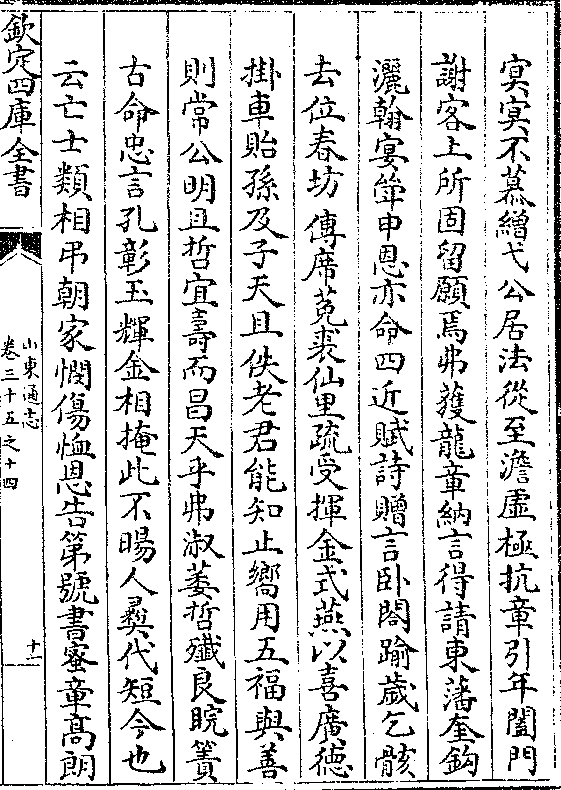 冥冥不慕繒弋公居法從至澹虛極抗章引年闔門
謝客上所固留願焉弗獲龍章納言得請東藩奎鈎
灑翰宴𥰭申恩亦命四近賦詩贈言卧閤踰歳乞骸
去位春坊傳席菟裘仙里疏受揮金式燕以喜廣德
掛車貽孫及子天且佚老君能知止嚮用五福與善
則常公明且哲宜壽而昌天乎弗淑萎哲殱良睆簀
古命忠言孔彰玉輝金相掩此不暘人彛代短今也
云亡士類相弔朝家憫傷恤恩告第號書蜜章高朗
欽定四庫全書
山東通志
卷三十五之十四
十一